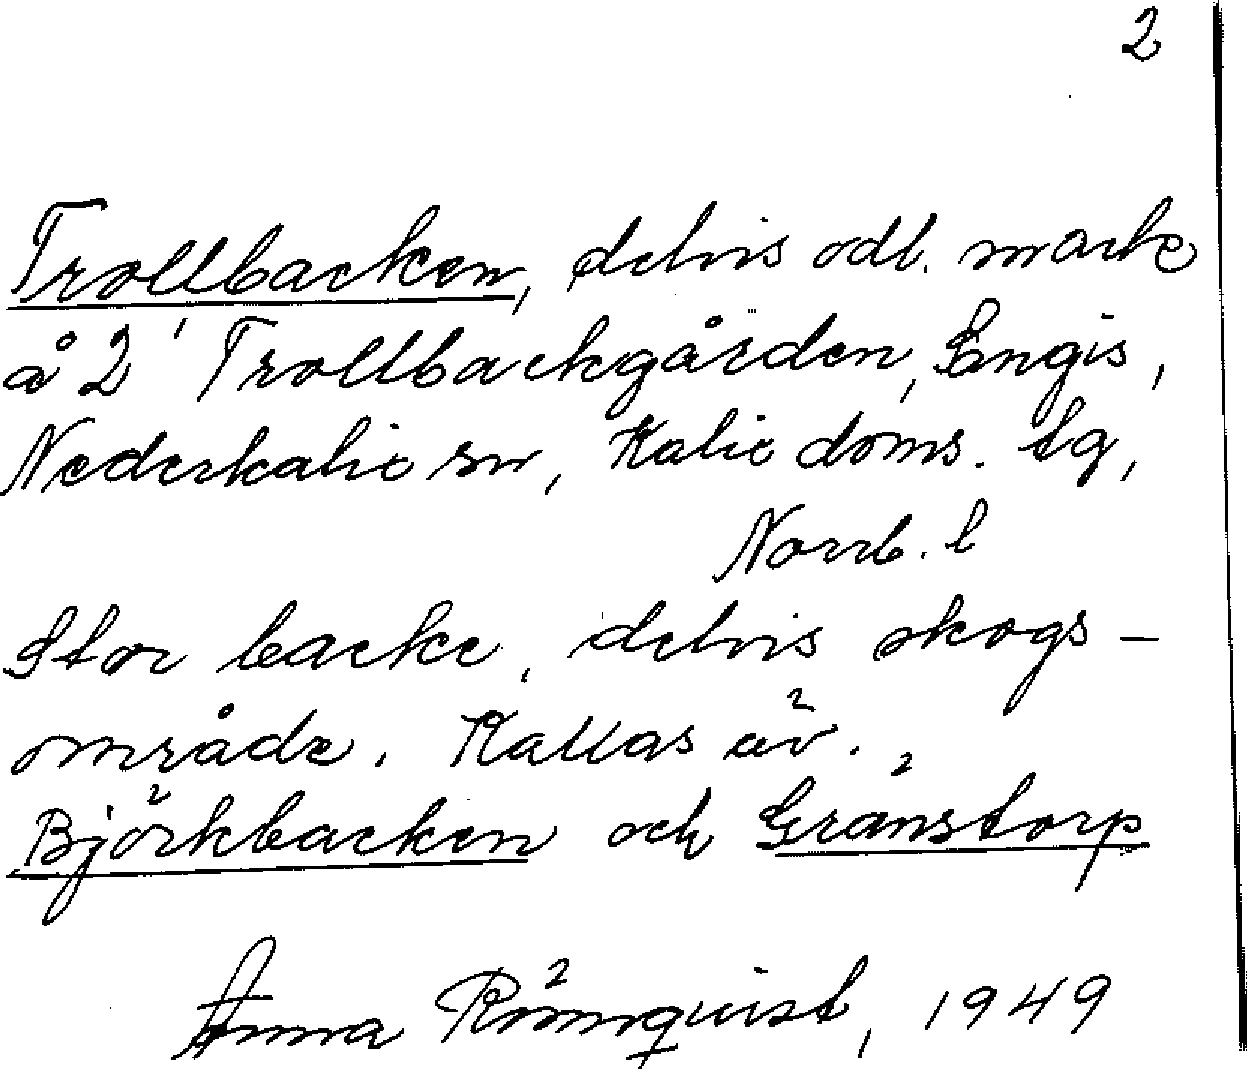 2
Trollbacken, delvis odl. mark
å 2' Trollbackgården, Sangis,
Nederkalix sn, Kalix doms. tg,
Norrb. l
Stor backe, delvis skogs-
område. Kallas äv.
Björkbacken och Gränstorp
Anna Rönnqvist, 1949